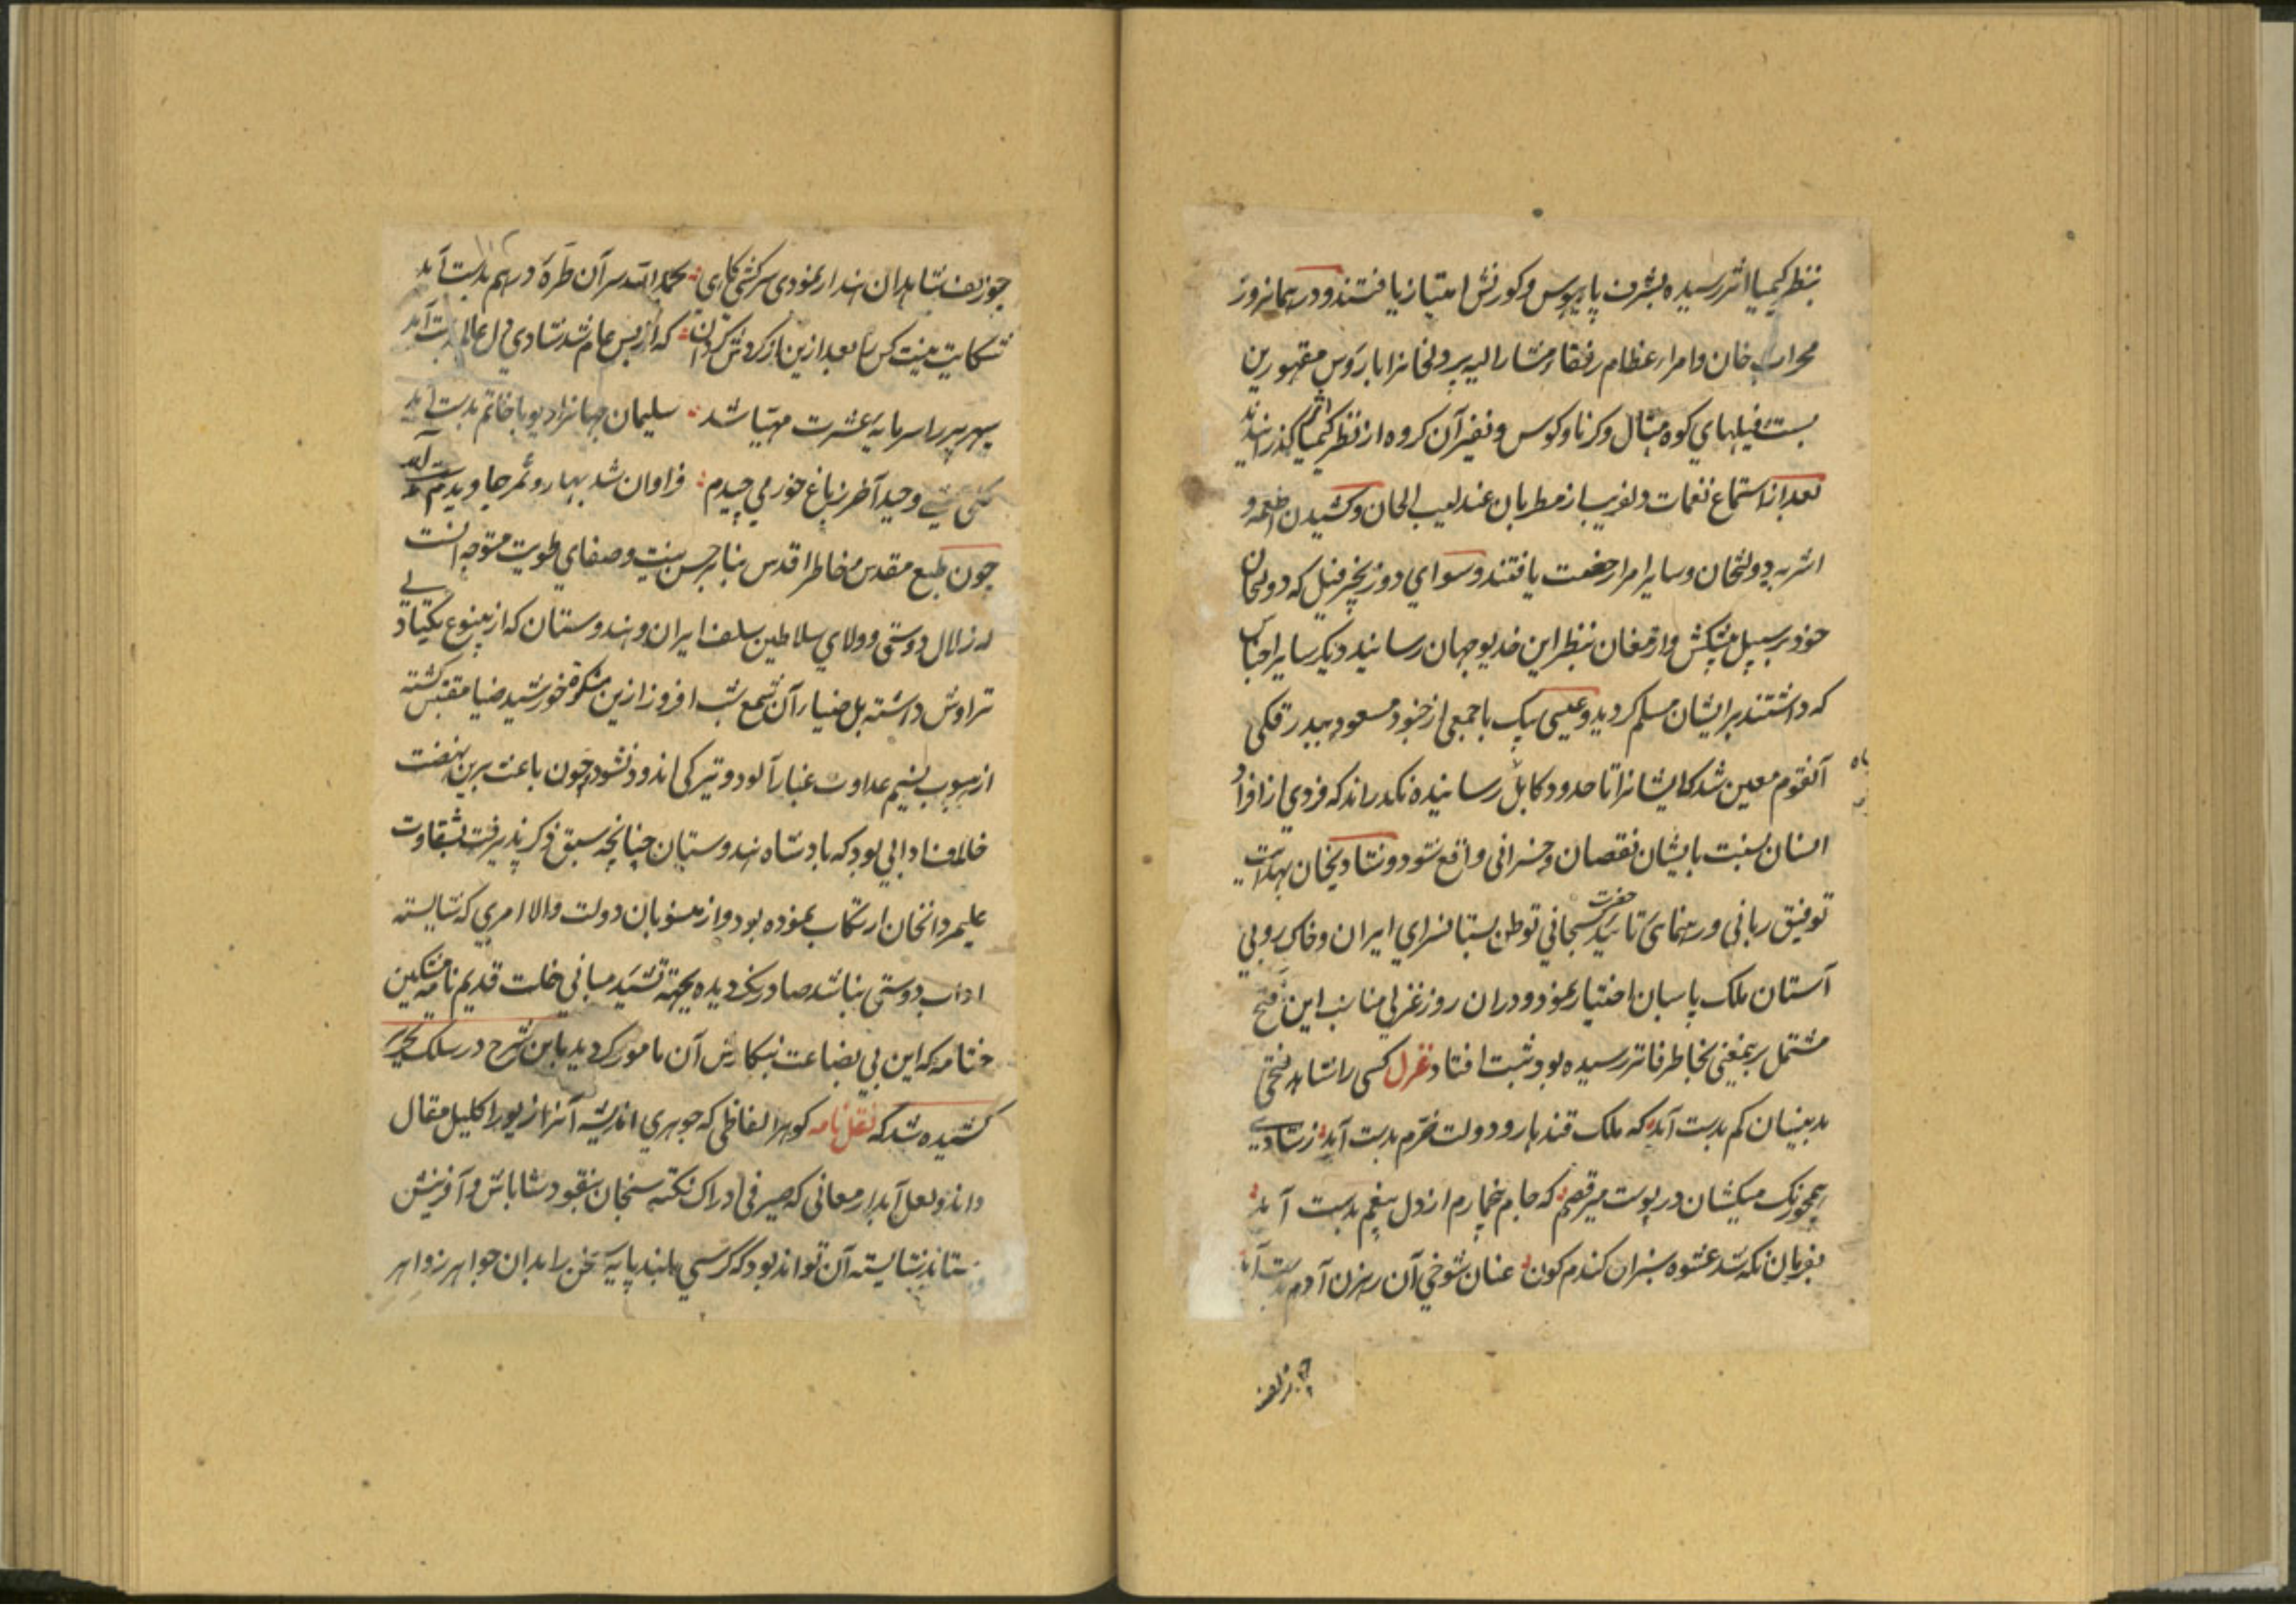 بنظر کیمیا اثر رسیده بشرف پایبوس و کورنش امتیاز یافتند و در همانروز
محراب خان و امراء عظام رفقاء مشار الیه پردلخانرا با رؤس مقهورین
بست فیلهای کوه مثال و کرنا و کوس و نفیر آن کروه از نظر کیمیا اثر کذرانیدند
بعد از استماع نغمات دلفریب از مطربان عندلیب الحان و کشیدن اطعمه و
اشربه دولتخان و سایر امرا رخصت یافتند و سوای دو زنجیر فیل که دولتخان
خود بر سبیل پیشکش و ارمغان بنظر این خدیو جهان رسانید دیکر سایر اجناس
که داشتند برایشان مسلم کردید و عیسی بیک با جمعی از جنود مسعود ببدرقکی
آنقوم معین شد که ایشانرا تا حدود کابل رسانیده نکذراند که فردی از افراد
انسان نسبت بایشان نقصان و خسرانی واقع شود و شادیخان بهدایت
توفیق ربانی و رهنمای تائید حضرت سبحانی توطن بستانسرای ایران و خاک روبی
آستان ملک پاسبان اختیار نمود و در ان روز غزلی مناسب این فتح
مشتمل بریمعنی بخاطر فاتر رسیده بود ثبت افتاد غزل کسی را شاهد فتحی
بدینسان کم بدست آید که ملک قندهار و دولت خرم بدست آید ز شادی
همچو زنک میکشان در پوست میرقصم که جام خمارم از دل بیغم بدست آید
بفرمان نکه شد عشوه سبزان کندم کون عنان شوخی آن رهزن آدم بدست آید
چو زلف
چو زلف شاهدان هند ار نمودی سرکشی کاری بحمد الله سر آن طره درهم بدست آید
شکایت نیست کس را بعد ازین از کردش کردون که از بس عام شد شادی دل عالم بدست آید
سپهر پیر را سرمایه عشرت مهیا شد سلیمان جهانرا دیو با خاتم بدست آید
وحید آخر ز باغ خرمی چیدم فراوان شد بهار و ثمر جاوید بدست آید
چون طبع مقدس و خاطر اقدس بنا بر حسن نیت و صفای طویت متوجه انست
که زلال دوستی و ولای سلاطین سلف ایران و هندوستان که از ینبوع یکتادلی
تراوش داشته بل ضیاء آن شمع شب افروز ازین مشکوة خورشید ضیا مقتبس کشته
از هبوب نسیم عداوت غبار آلود و تیرکی اندود نشود و چون باعث برین نهضت
خلاف ادابی بود که بادشاه هندوستان چنانچه سبق ذکر پذیرفت بشقاوت
علیمردانخان ارتکاب نموده بود و از منسوبان دولت والا امری که شایسته
اداب دوستی نباشد صادر نکردیده بجهة تشیید مبانی خلت قدیم نامه مشکین
ختامه که این بی بضاعت بنکارش آن مامور کردید باین شرح در سلک تحریر
کشیده شد که نقل نامه کوهر الفاظی که جوهری اندیشه آنرا زیور اکلیل مقال
داند و لعل آبدار معانی که صیرفی ادراک نکته سنجان بنقود شاباش و آفرینش
ستاند شایسته آن تواند بود که کرسی بلند پایه سخن را بدان جواهر زواهر